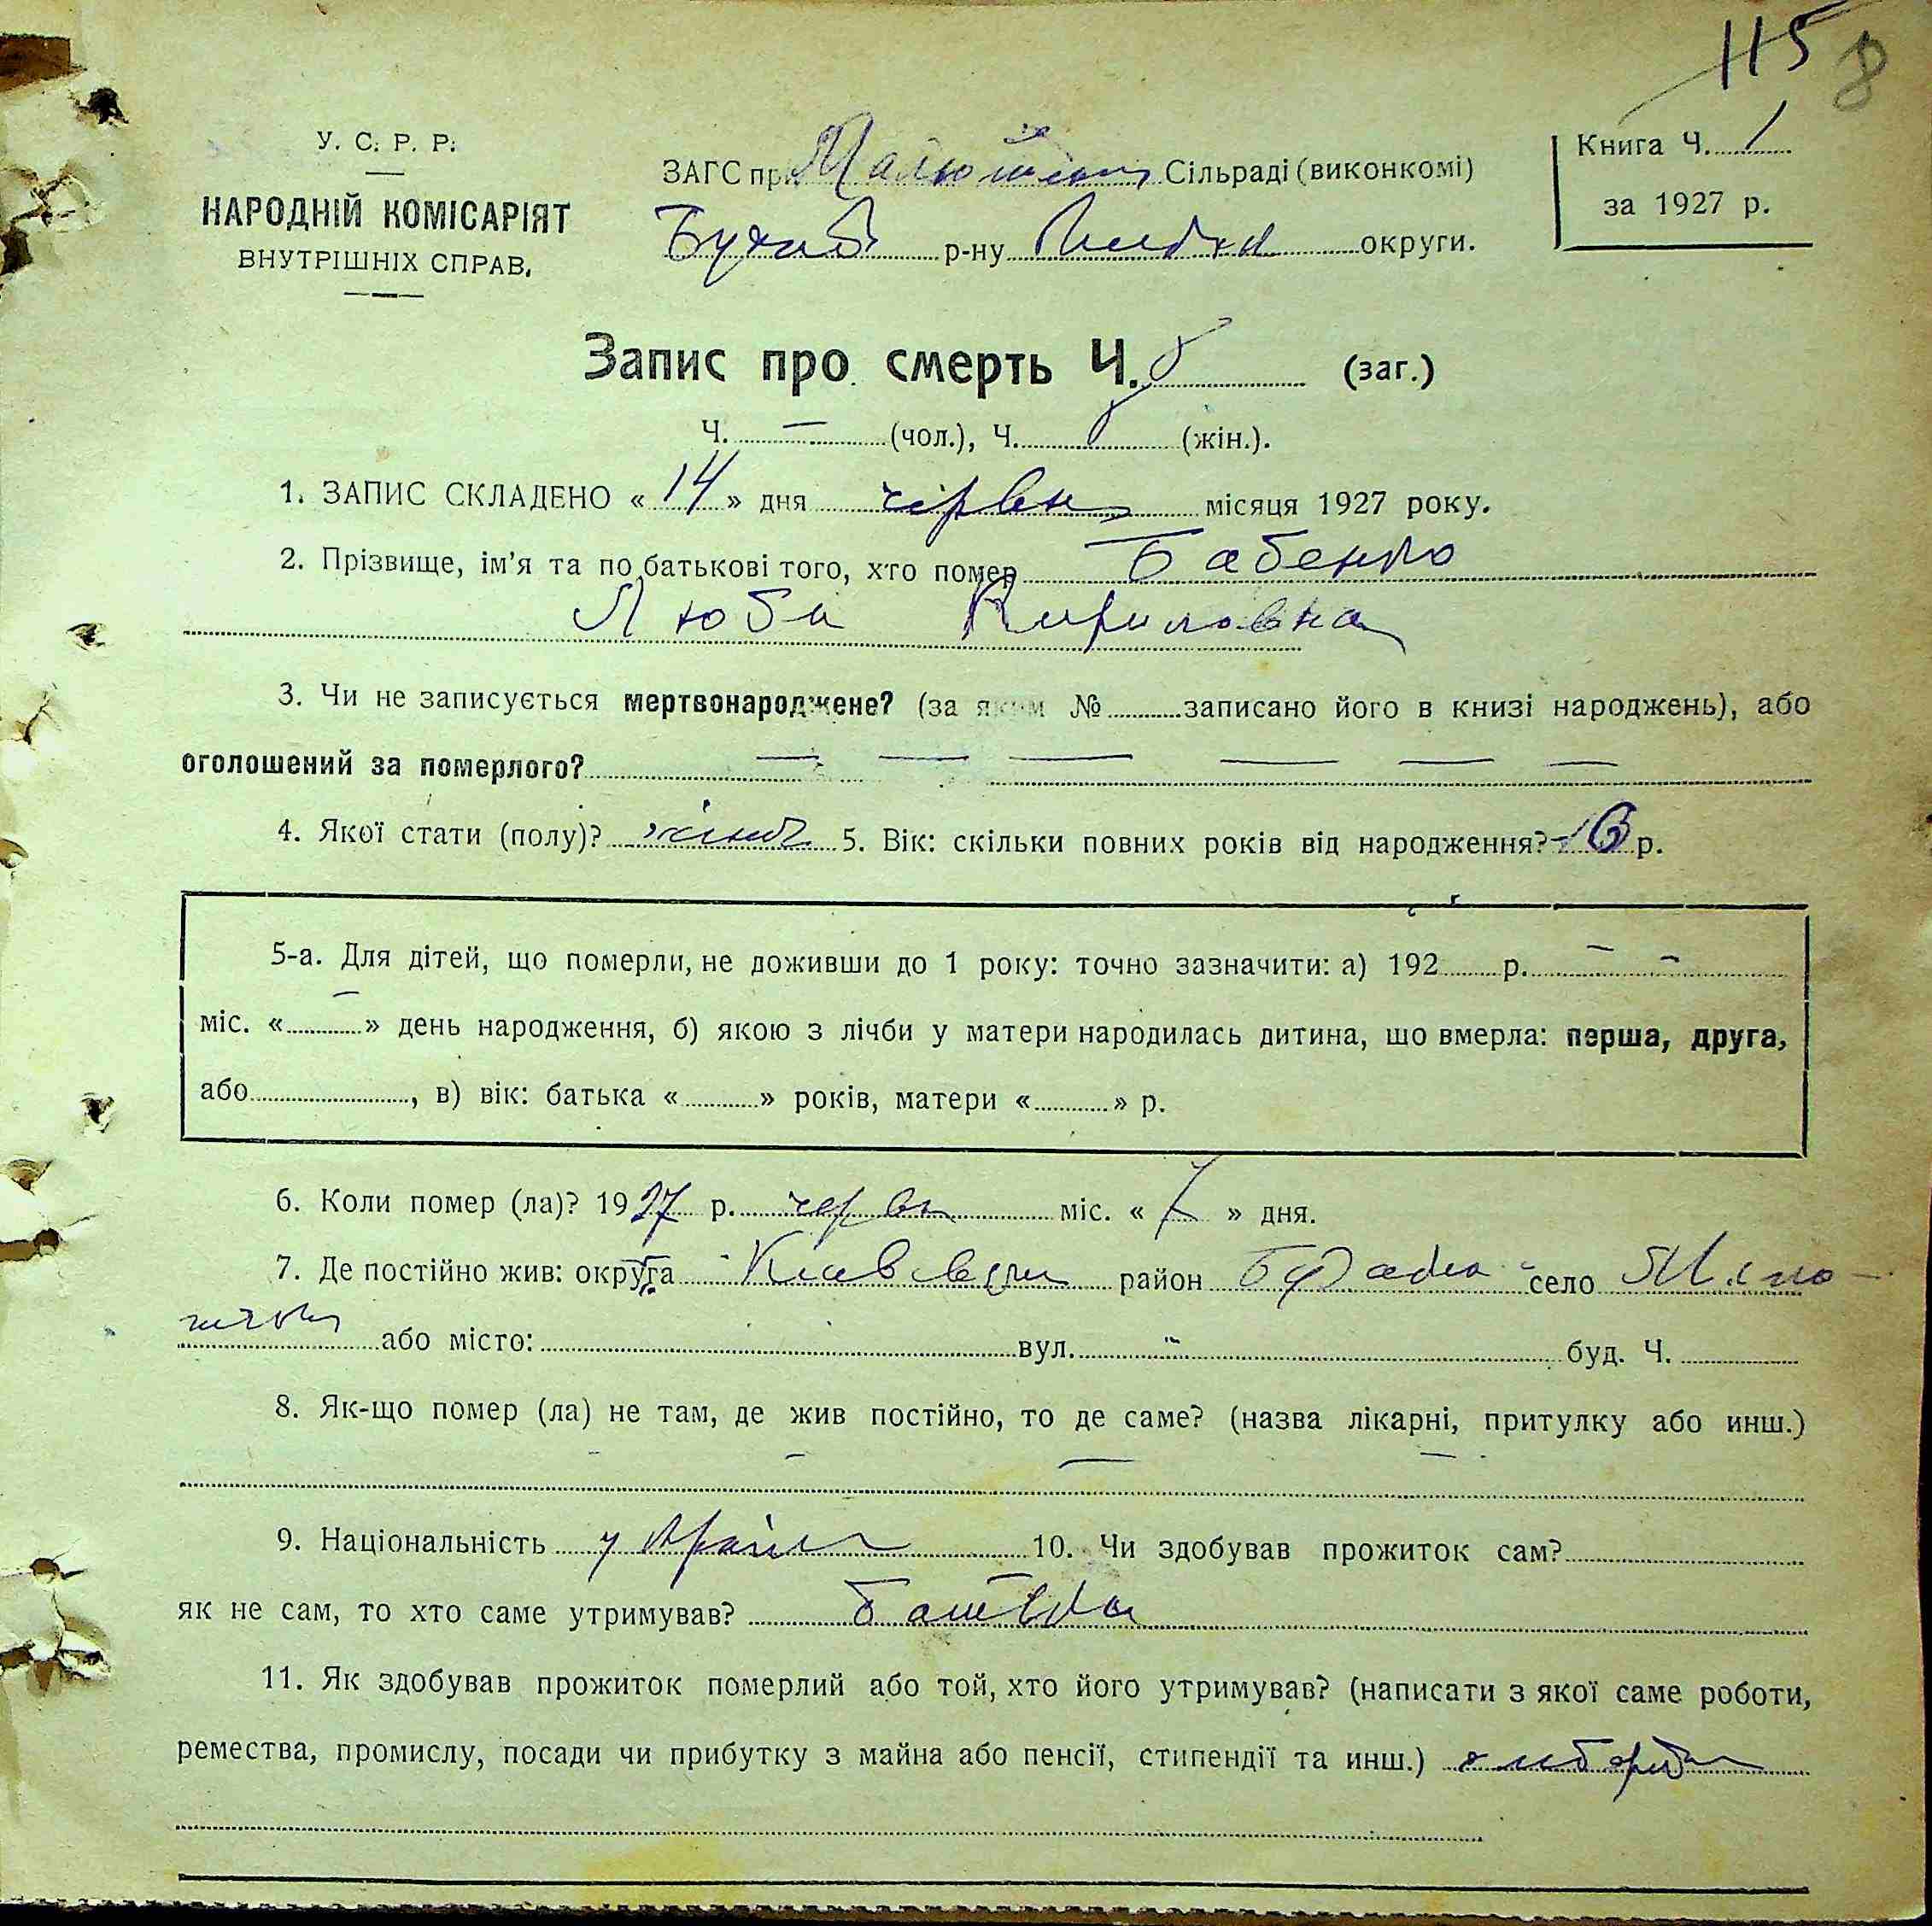 115 8
У. С. Р. Р.
НАРОДНІЙ КОМІСАРІЯТ
ВНУТРІШНІХ СПРАВ.
ЗАГС при Сільраді (виконкомі)
р-ну округи.
Книга Ч. 1
за 1927 р.
Запис про смерть Ч. 8 (заг.)
Ч. — (чол.), Ч. 8 (жін.).
1. ЗАПИС СКЛАДЕНО «14» дня червн місяця 1927 року.
2. Прізвище, ім'я та по батькові того, хто помер Бабенко
Люба Кириловна
3. Чи не записується мертвонароджене? (за яким № записано його в книзі народжень), або
оголошений за померлого? — — — — — —
4. Якої стати (полу)? жіноч 5. Вік: скільки повних років від народження? р.
5-а. Для дітей, що померли, не доживши до 1 року: точно зазначити: а) 192 р. — —
міс. « — » день народження, б) якою з лічби у матери народилась дитина, що вмерла: перша, друга,
або , в) вік: батька « » років, матери « » р.
6. Коли помер (ла)? 1927 р. червн міс. «7» дня.
7. Де постійно жив: округа район село
або місто: вул. буд. Ч.
8. Як-що помер (ла) не там, де жив постійно, то де саме? (назва лікарні, притулку або инш.)
— — —
9. Національність україн 10. Чи здобував прожиток сам?
як не сам, то хто саме утримував? батько
11. Як здобував прожиток померлий або той, хто його утримував? (написати з якої саме роботи,
ремества, промислу, посади чи прибутку з майна або пенсії, стипендії та инш.) хлібороб